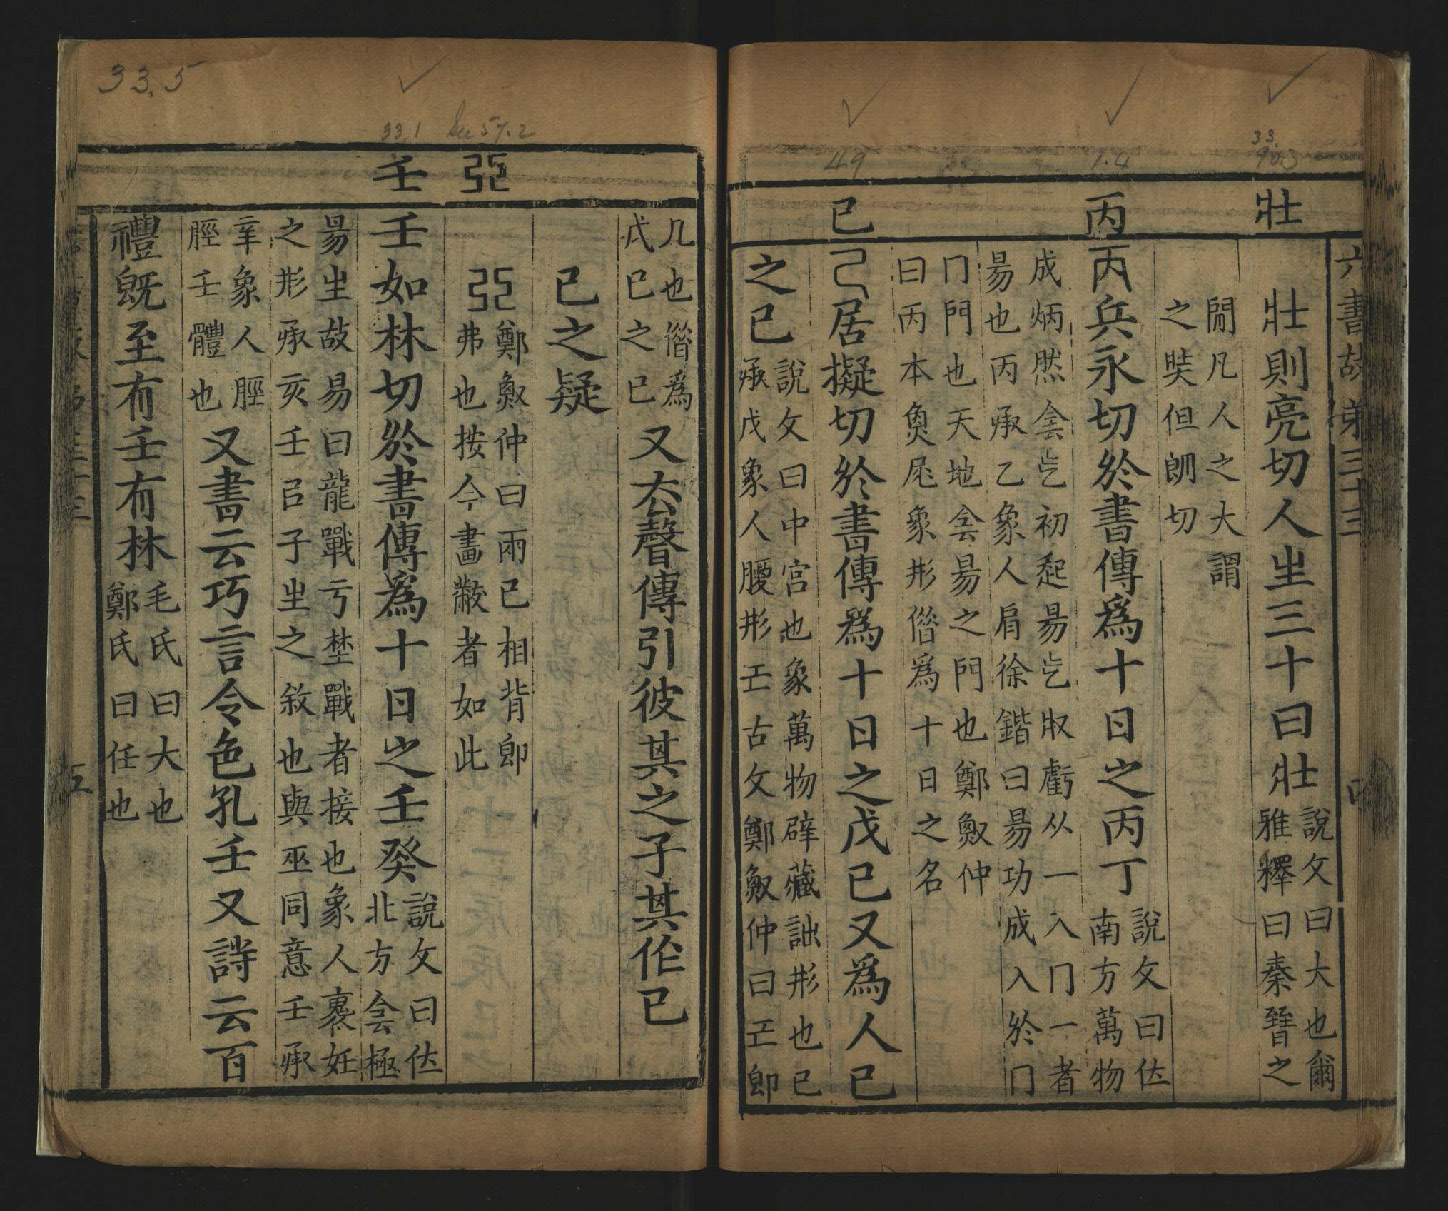 六書故 弟三十三
壯
壯則亮切人生三十曰壯
說文曰大也爾
雅釋曰秦晉之
閒凡人之大謂
之奘但朗切
丙
丙兵永切於書傳爲十日之丙丁
說文曰位
南方萬物
成炳然侌气初起昜气㫷虧从一入冂一者
昜也丙承乙象人肩徐鍇曰昜功成入於冂
冂門也天地侌昜之門也鄭敘仲
曰丙本魚尾象形借爲十日之名
己
己居擬切於書傳爲十日之戊己又爲人己
之己
說文曰中宮也象萬物辟藏詘形也己
承戊象人腰形𢀒古文鄭敘仲曰𢀒卽
几也借爲
戊己之己
又去聲傳引彼其之子其作己
己之疑
亞
亞
鄭敘仲曰兩己相背卽
弗也按今畫黻者如此
壬
壬如林切於書傳爲十日之壬癸
說文曰位
北方侌極
昜生故易曰龍戰亏埜戰者接也象人褢妊
之形承亥壬㠯子生之敘也與巫同意壬承
辛象人脛
脛壬體也
又書云巧言令色孔壬又詩云百
禮旣至有壬有林
毛氏曰大也
鄭氏曰任也
四
五
33.5
33.1
49
1.4